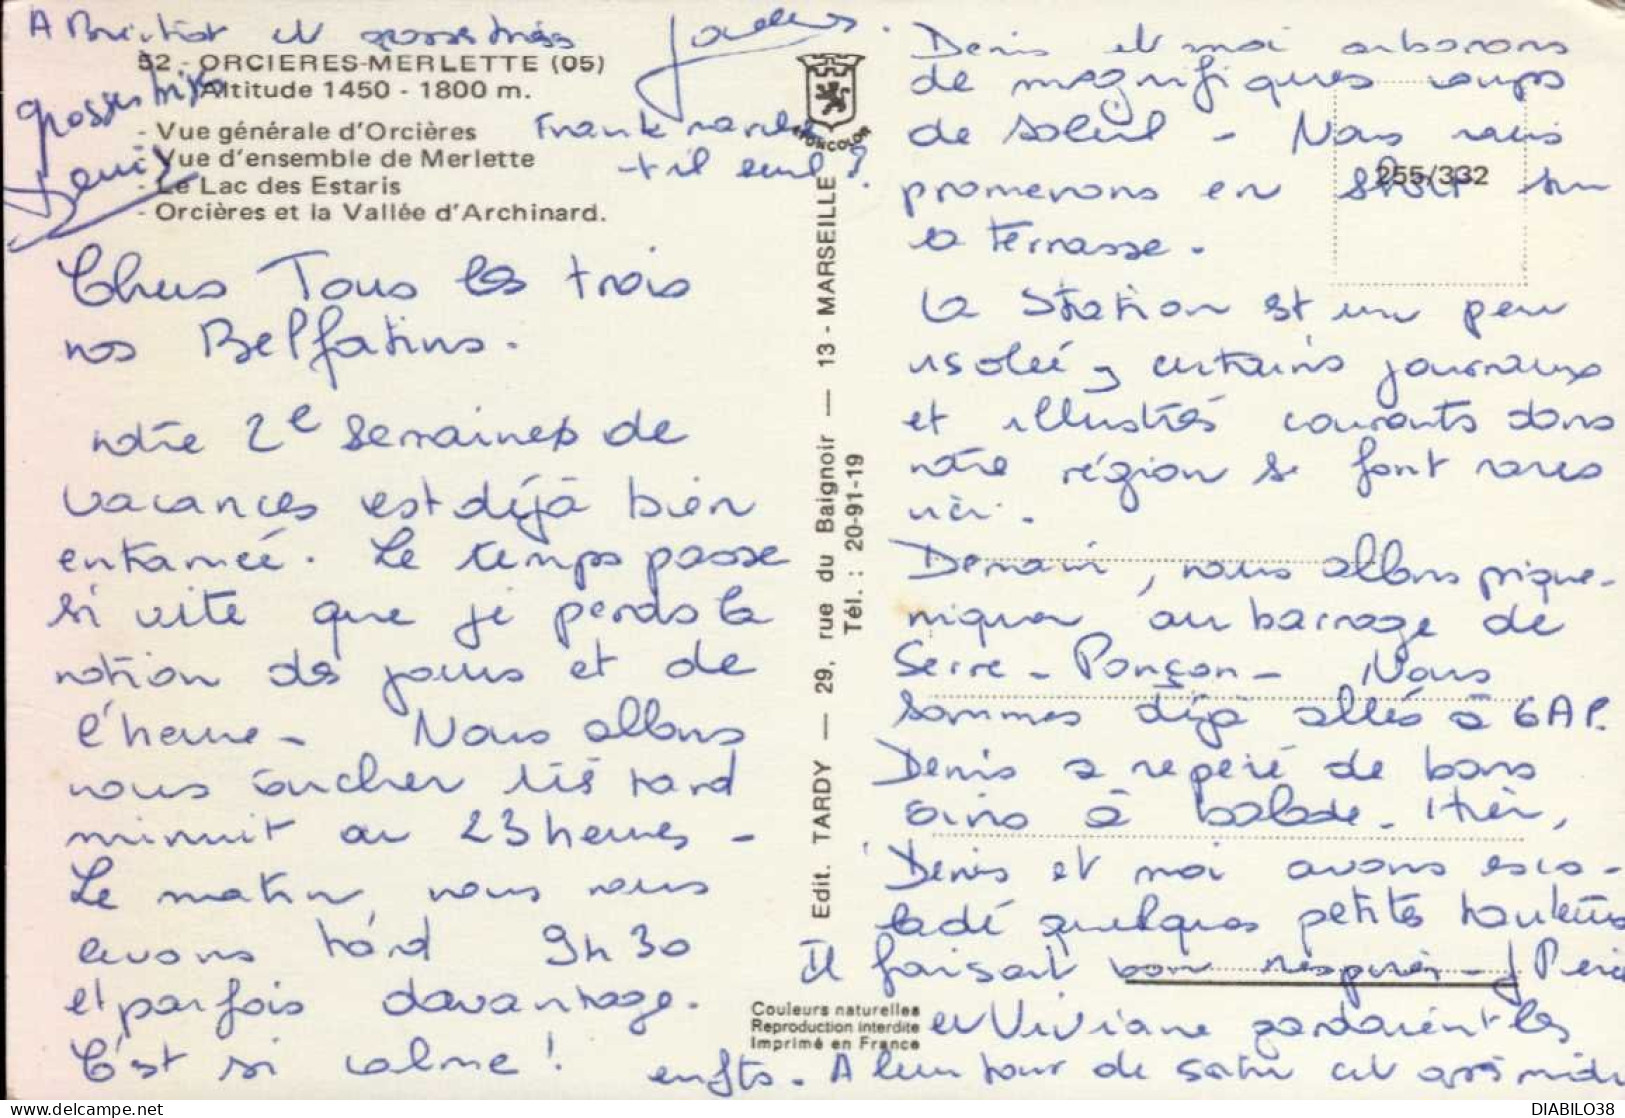 52 - ORCIERES-MERLETTE (05)
Altitude 1450 - 1800 m.
- Vue générale d'Orcières
- Vue d'ensemble de Merlette
- Le Lac des Estaris
- Orcières et la Vallée d'Archinard.
Chers Tous les trois
nos Belfatins.
notre 2e semaines de
vacances est déjà bien
entamée. Le temps passe
si vite que je perds la
notion des jours et de
l'heure - Nous allons
nous coucher très tard
minuit ou 23 heures -
Le matin, nous nous
levons tard 9h30
et parfois davantage.
C'est si calme !
Denis et moi arborons
de magnifiques coups
de soleil - Nous nous
promenons en short sur
la terrasse.
La Station est un peu
isolée, certains journaux
et illustrés courants dans
notre région se font rares
ici.
Demain, nous allons pique-
niquer au barrage de
Serre-Ponçon - Nous
sommes déjà allés à GAP.
Denis a repéré de bons
coins à balade. Hier,
Denis et moi avons esca-
ladé quelques petites hauteurs
Il faisait bon respirer -
et Viviane gardaient les
enfts. A leur tour de sortir cet après midi
A et grosses bises
grosses bises
Denis
Frank
t-il seul ?
SPORCOLOR
255/332
Edit. TARDY — 29, rue du Baignoir — 13 - MARSEILLE
Tél. : 20-91-19
Couleurs naturelles
Reproduction interdite
Imprimé en France
DIABILO38